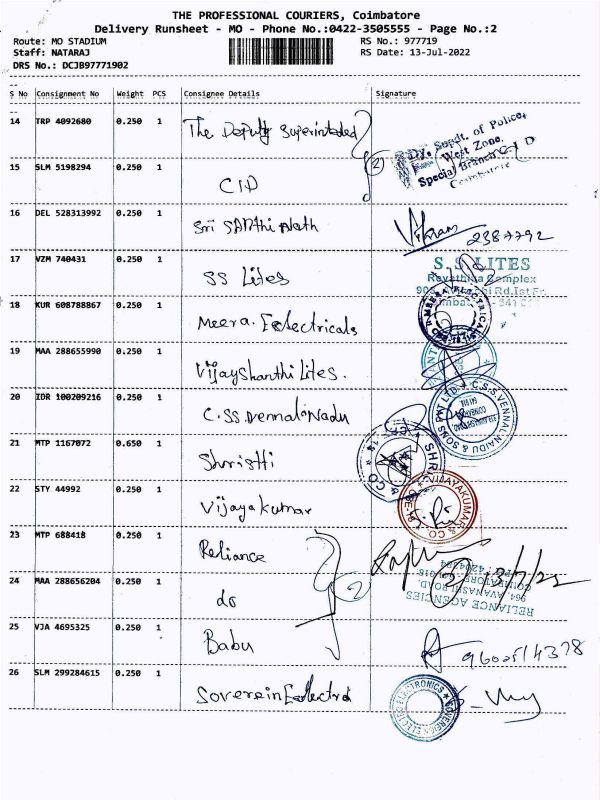 THE PROFESSIONAL COURIERS, Coimbatore
Delivery Runsheet - MO - Phone No.:0422-3505555 - Page No.:2
Route: MO STADIUM
RS No.: 977719
Staff: NATARAJ
RS Date: 13-Jul-2022
DRS No.: DCJB97771902
S No Consignment No Weight PCS Consignee Details Signature
14 TRP 4092680 0.250 1 The Deputy Superintended
Dy. Supdt. of Police,
West Zone,
Special Branch C I D
Coimbatore
2
15 SLM 5198294 0.250 1 CID
16 DEL 528313992 0.250 1 Sri SANthi Nath 2387792
17 VZM 740431 0.250 1 SS Lites
S.S. LITES
Complex
18 KUR 608788867 0.250 1 Meera Eelectricals
19 MAA 288655990 0.250 1 Vijayshanthi Lites.
20 IDR 100209216 0.250 1 C.SS.Vennal Nadu
C.S.S.VENNAL NAIDU & SONS PVT LTD
21 MTP 1167072 0.650 1 Shristi
22 STY 44992 0.250 1 Vijayakumar
VIJAYAKUMAR & CO
23 MTP 688418 0.250 1 Reliance
2 13/7/22
24 MAA 288656204 0.250 1 do
2
RELIANCE AGENCIES
964, AVANASHI ROAD
25 VJA 4695325 0.250 1 Babu
26 SLM 299284615 0.250 1 Soverein Eelectro
SOVEREIGN ELECTRO ELECTRONICS